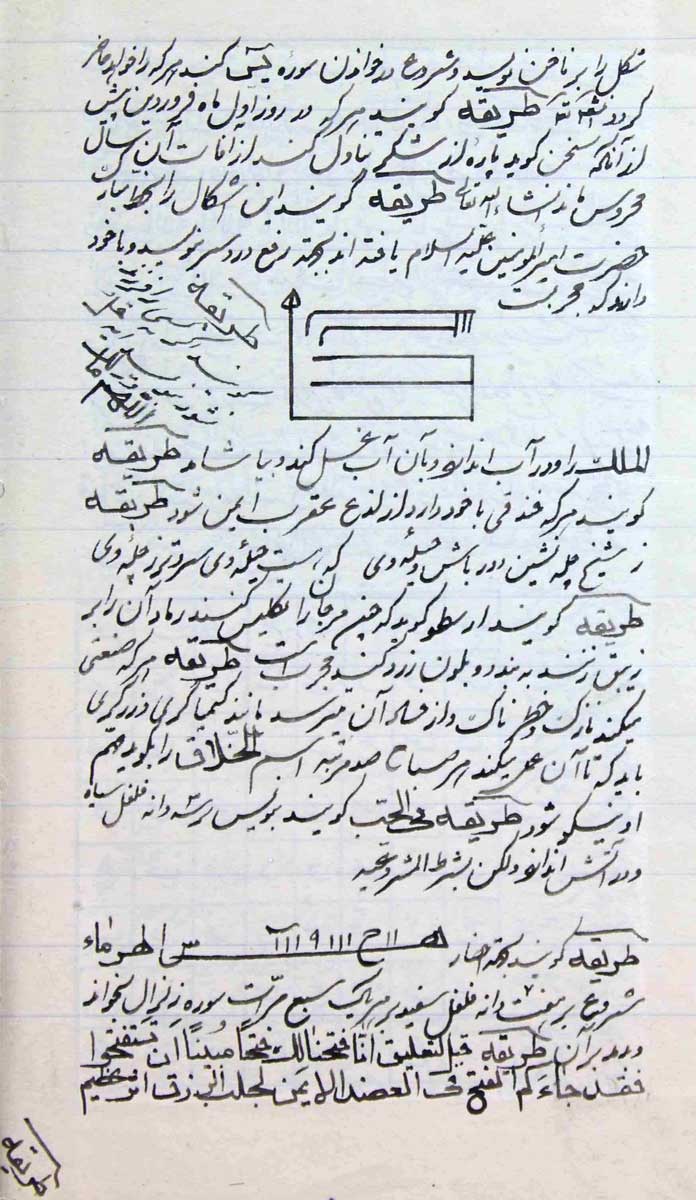 شکل را بر ناخن نویسد و شروع در خواندن سوره یٓس کند هر که را خواهد حاضر
گردد طریقه گویند هر که در روز اول ماه فروردین پیش
از آنکه سخن گوید پاره از شکر تناول کند از آفات آن سال
محروس ماند انشاءالله تعالی طریقه گویند این اشکال را بخط مبارک
حضرت امیرالمومنین علیه السلام یافته اند بجهة رفع درد سر نویسد و با خود
دارد که مجربست
طریقه
الملک را در آب اندازد و بآن آب غسل کند و بیاشامد طریقه
گویند هر که فندقی با خود دارد از لذع عقرب ایمن شود طریقه
ز شیخ چله نشین دور باش و چله وی که هست چله وی سردتر ز چله وی
طریقه گویند ارسطو گوید که چون مرجان را تکلیس کنند رماد آن را بر
زیبق زنند به بندد و بلون زرد کند مجرب است طریقه هر که صنعتی
میکند نازک و خطرناک و از فساد آن میترسد مانند کیمیاگری و زرگری
باید که تا آن عمل میکند هر صباح صد مرتبه اسم الخلاق را بگوید مهم
او نیکو شود طریقه فی الحب گویند بنویس بر سه دانه فلفل سیاه
و در آتش انداز ولکن بشرط المشروعیه
طریقه گویند بجهة احضار
شروع بر هفت دانه فلفل سفید بر هر یک سبع مرّات سوره زلزال بخواند
و دمد بر آن طریقه قبل التعلیق انّا فتحنا لک فتحا مبینا ان تستفتحوا
فقد جاءکم الفتح فی العضد الایمن لجلب الرزق اثر عظیم
طریقه